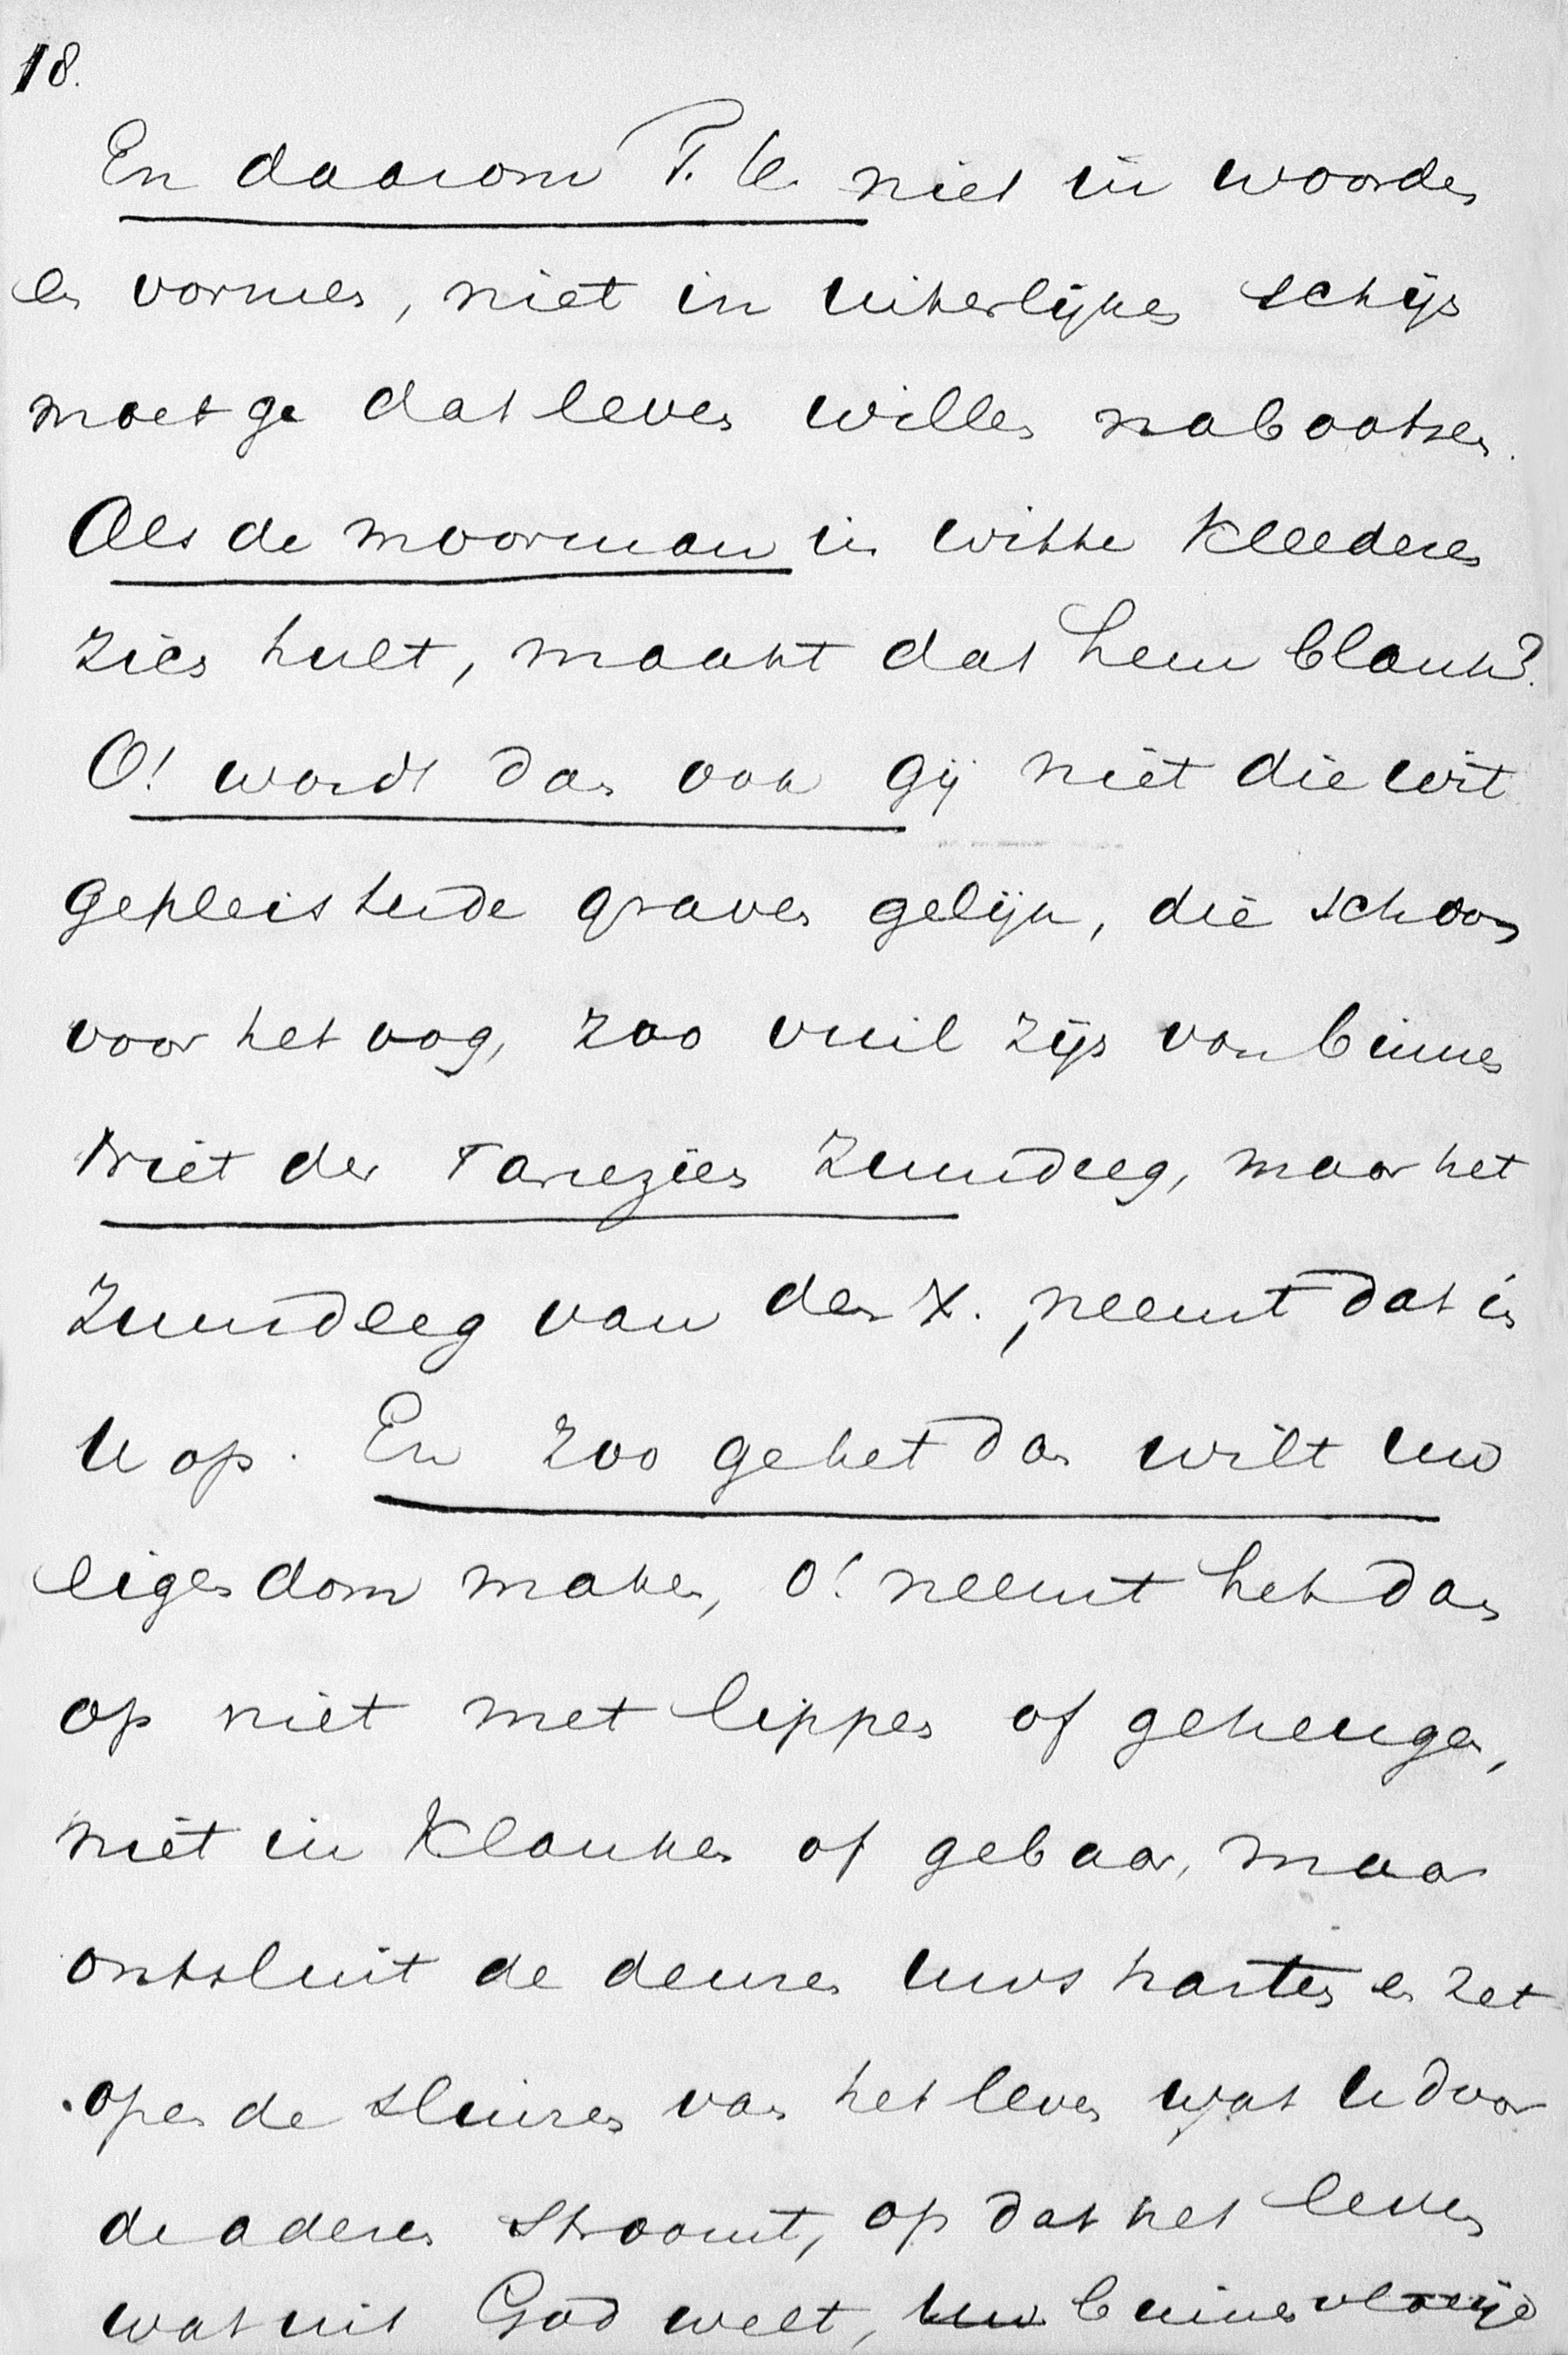 18.
En daarom T. G. niet in woorden
en vormen, niet in uiterlijken schijn
moet ge dat leven willen nabootsen.
Als de moorman in witte kleederen
zich hult, maakt dat hem blank?
O! wordt dan ook gij niet die wit
gepleisterde graven gelijk, die schoon
voor het oog, zoo vuil zijn van binnen
Niet der Farizeën zuurdeeg, maar het
zuurdeeg van den X., neemt dat in
U op. En zoo ge het dan wilt uw
eigendom maken, o! neemt het dan
op niet met lippen of geheugen,
niet in klanken of gebaar, maar
ontsluit de deuren uws harten en zet
open de sluizen van het leven wat U door
de aderen stroomt, op dat het leven
wat uit God welt, uw binnenvloeije